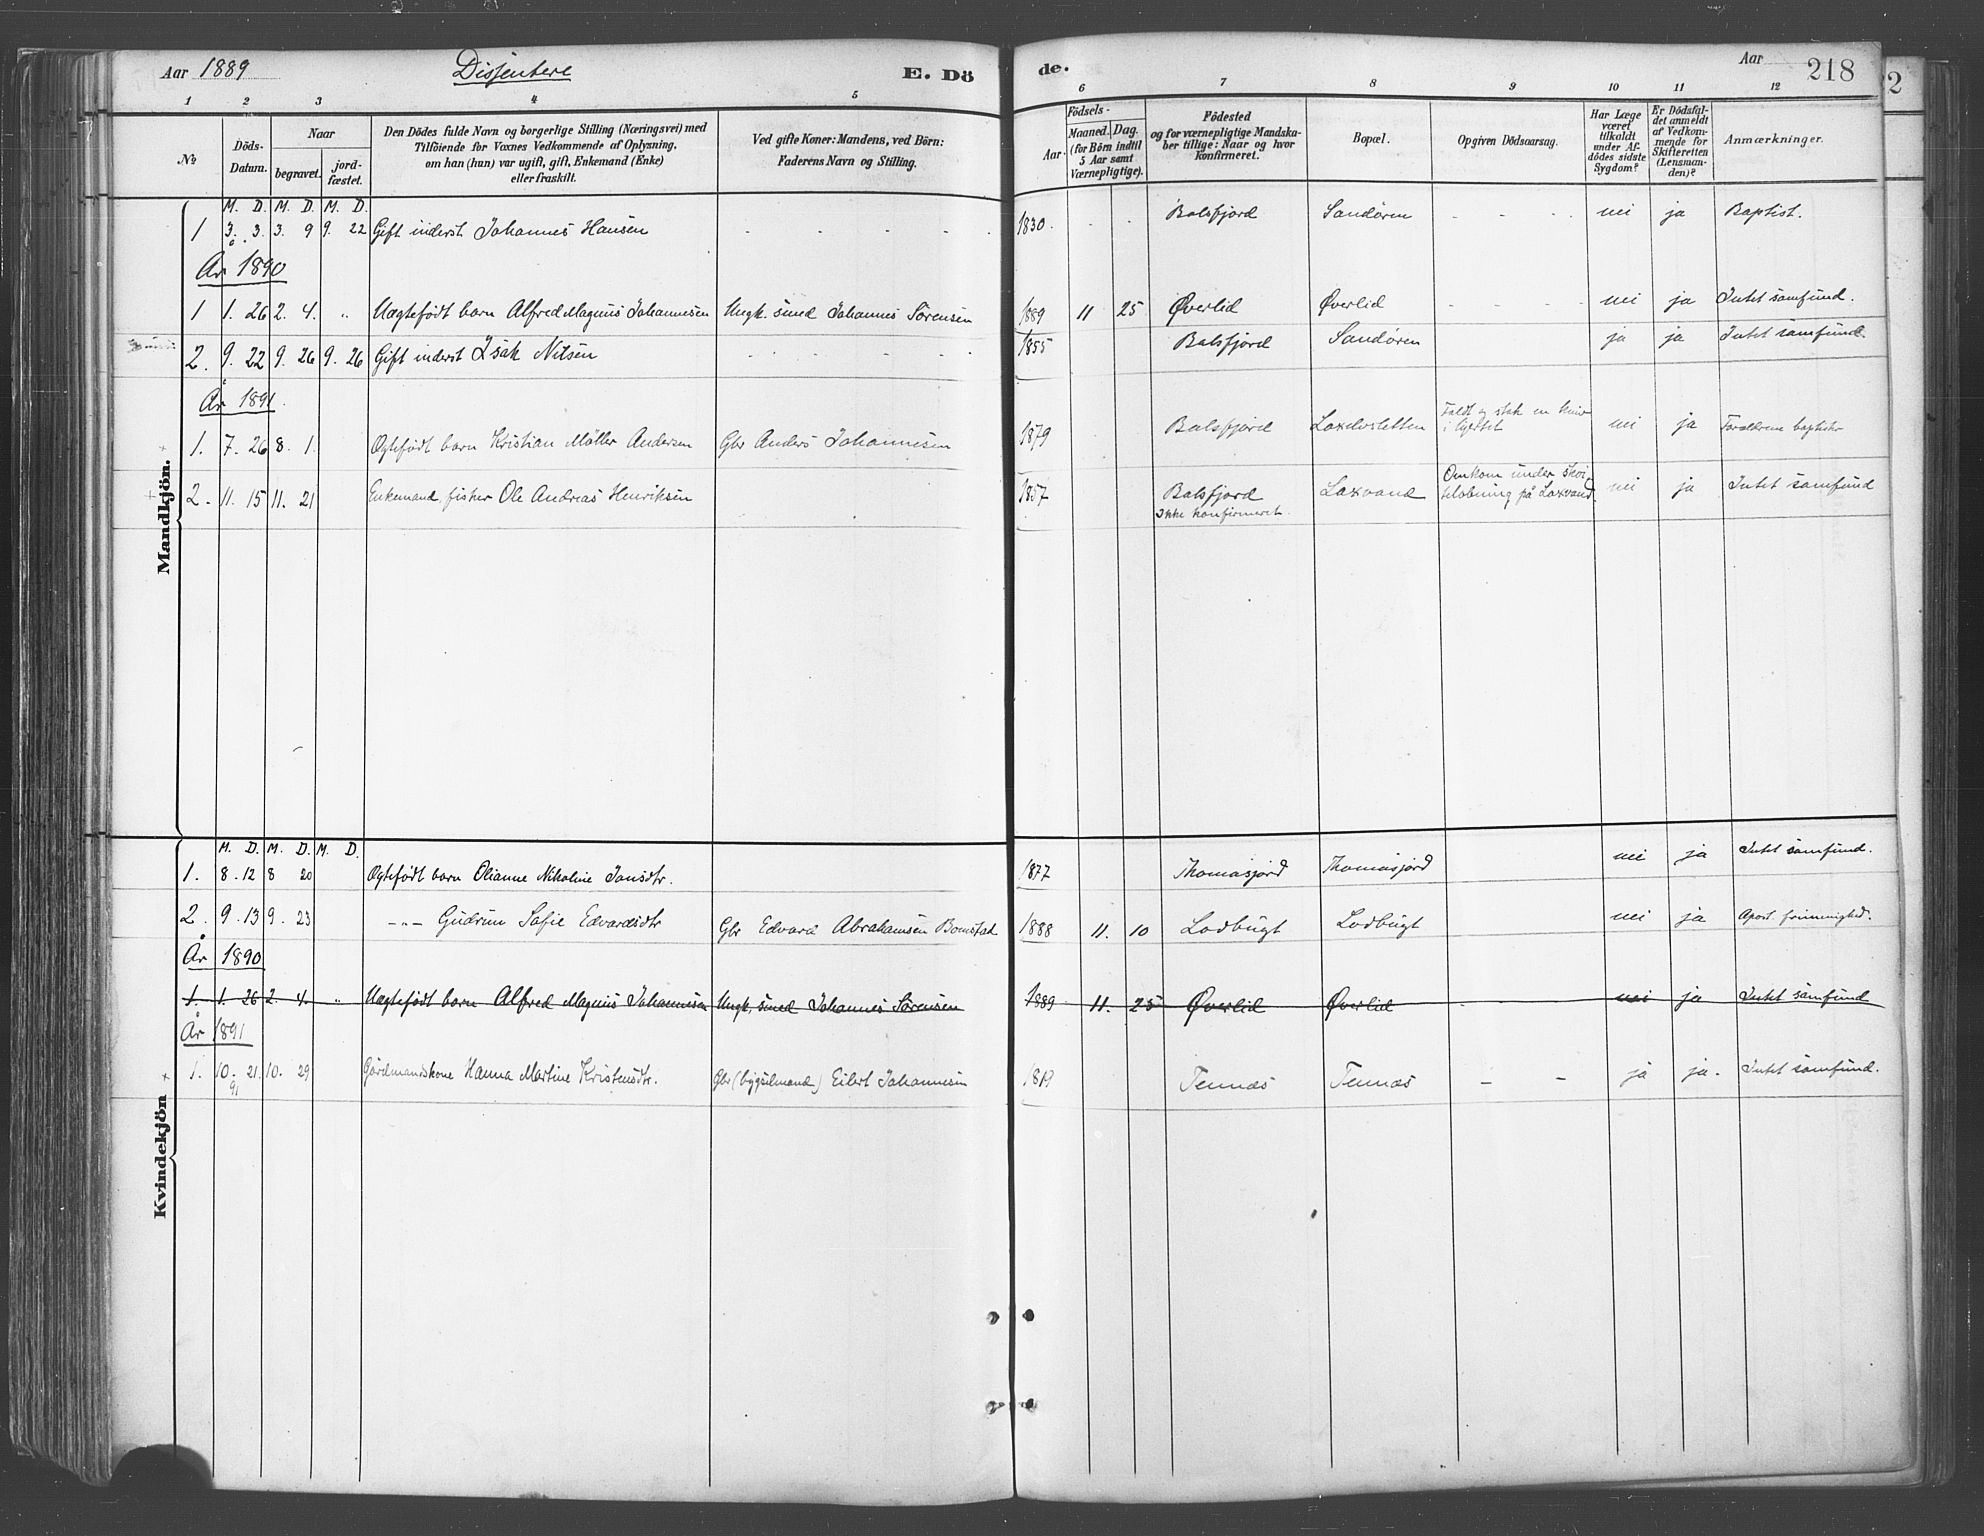 Aar 1889 Dissentere E. Dö de. Aar 218
1 2 3 4 5 6 7 8 9 10 11 12
No
Döds-Datum.
Naar
begravet.
jord-fæstet.
Den Dödes fulde Navn og borgerlige Stilling (Næringsvei) med
Tilföiende for Voxnes Vedkommende af Oplysning,
om han (hun) var ugift, gift, Enkemand (Enke)
eller fraskilt.
Ved gifte Koner: Mandens, ved Börn:
Faderens Navn og Stilling.
Födsels-
Aar.
Maaned. Dag.
(for Börn indtil
5 Aar samt
Værnepligtige).
Födested
og for værnepligtige Mandska-
ber tillige: Naar og hvor
konfirmeret.
Bopæl.
Opgiven Dödsaarsag.
Har Læge
været
tilkaldt
under Af-
dödes sidste
Sygdom?
Er Dödsfal-
det anmeldt
af Vedkom-
mende for
Skifteretten
(Lensman-
den)?
Anmærkninger.
Mandkjön.
M. D. M. D. M. D.
1 3. 3. 3. 9 9. 22 Gift inderst Johannes Hansen - - - - 1830 - - - Balsfjord Sandøren - - - nei ja Baptist.
År 1890
1 1. 26 2. 4. " Uægtefödt barn Alfred Magnus Johannesen Ungk. smed Johannes Sörensen 1889 11 25 Øverlid Øverlid - - - nei ja Intet samfund.
2. 9. 22 9. 26 9. 26 Gift inderst Isak Nilsen - - - - 1855 Balsfjord Sandøren ja ja Intet samfund.
År 1891
1. 7. 26 8. 1. Ægtefödt barn Kristian Möller Andersen Gbr Anders Johannesen 1879 Balsfjord Laxelvsletten Faldt og stak en kniv i hjertet nei ja Forældrene baptister
2. 11. 15 11. 21 Enkemand, fisker Ole Andreas Henriksen 1857 Balsfjord Ikke konfirmeret. Laxvand Omkom under skøitelöbning på Laxvand nei ja Intet samfund
Kvindekjön
M. D. M. D. M. D.
1. 8. 12 8 20 Ægtefödt barn Olianne Nikoline Jansdtr. 1877 Thomasjord Thomasjord nei ja Intet samfund.
2. 9. 13 9. 23 -"- Gudrun Sofie Edvardsdtr Gbr Edvard Abrahamsen Bomstad 1888 11. 10 Lodbugt Lodbugt nei ja Apost. frimenighed.
År 1890
1. 1. 26 2. 4. " Uægtefödt barn Alfred Magnus Johannesen Ungk. smed Johannes Sörensen 1889 11. 25 Øverlid Øverlid - - nei ja Intet samfund
År 1891
1. 10. 21. 10. 29 Gårdmandskone Hanna Martine Kristensdtr. Gbr (bygselmand) Eilert Johannesen 1819 Tennæs Tennæs - - ja ja. Intet samfund.
91